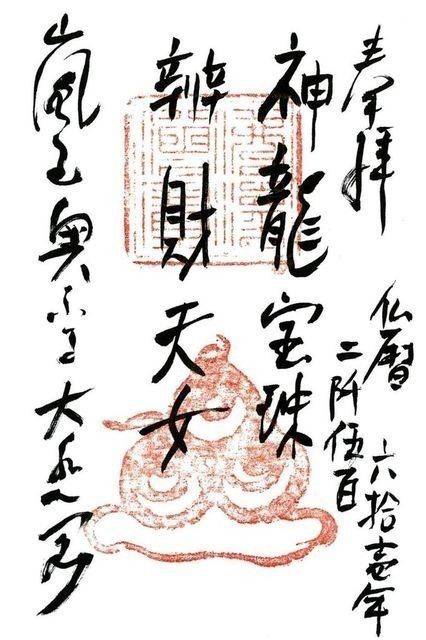 奉拝
仏暦
二阡伍百
六拾壱年
神龍宝珠
辨財天女
嵐 奥 大悲閣